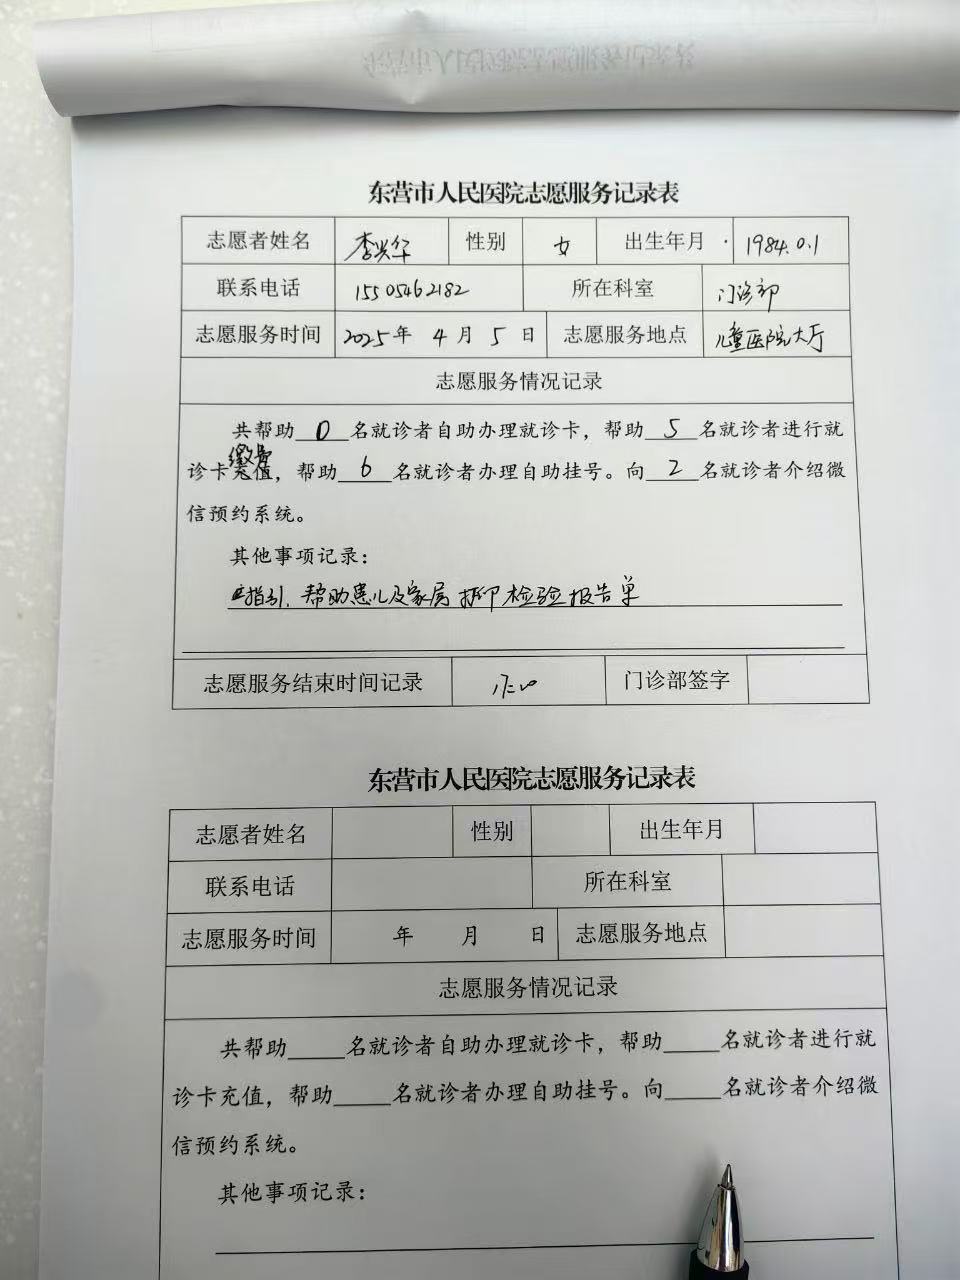 东营市人民医院志愿服务记录表
志愿者姓名 李兴华 性别 女 出生年月 1984.0.1
联系电话 15505462182 所在科室 门诊部
志愿服务时间 2025年 4月 5日 志愿服务地点 儿童医院大厅
志愿服务情况记录
共帮助 0 名就诊者自助办理就诊卡，帮助 5 名就诊者进行就
缴费
诊卡充值，帮助 6 名就诊者办理自助挂号。向 2 名就诊者介绍微
信预约系统。
其他事项记录：
指引、帮助患儿及家属打印检验报告单
志愿服务结束时间记录 门诊部签字
东营市人民医院志愿服务记录表
志愿者姓名 性别 出生年月
联系电话 所在科室
志愿服务时间 年 月 日 志愿服务地点
志愿服务情况记录
共帮助____名就诊者自助办理就诊卡，帮助____名就诊者进行就
诊卡充值，帮助____名就诊者办理自助挂号。向____名就诊者介绍微
信预约系统。
其他事项记录：